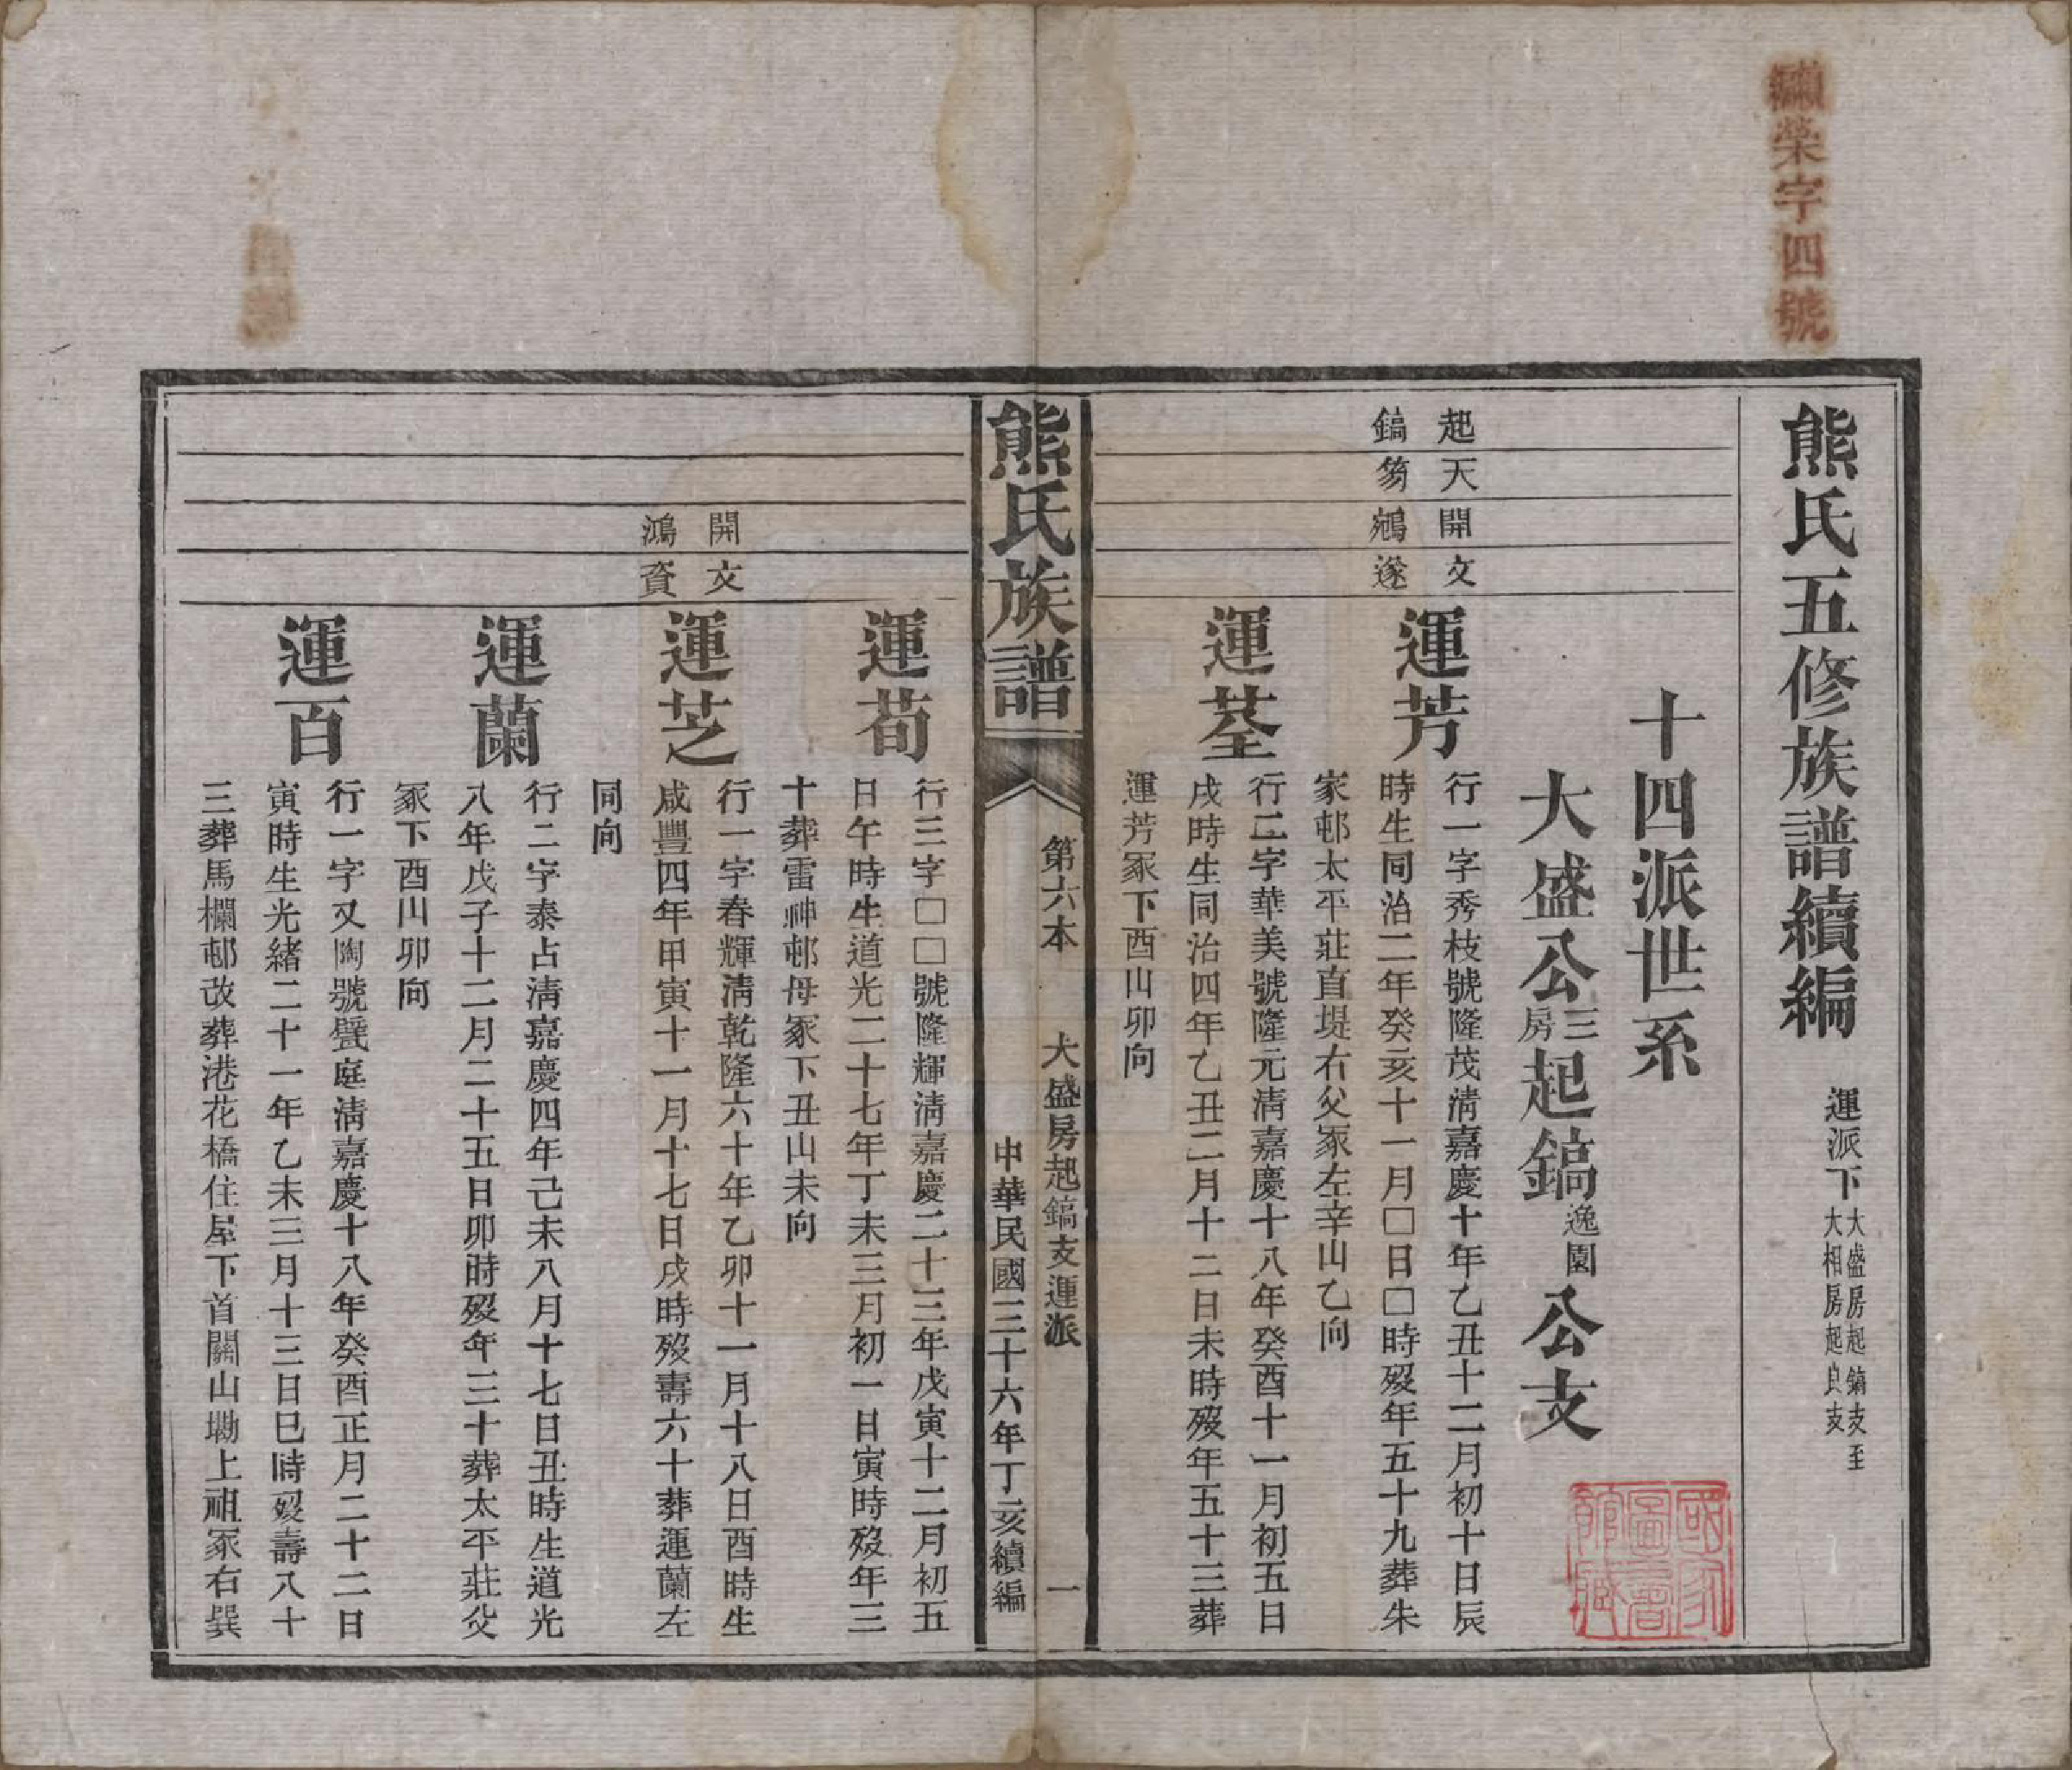 纘榮字四號
熊氏五修族譜續編
運派下
大盛房起鎬支至
大相房起良支
十四派世系
大盛公三房起鎬逸園公支
起鎬
天芻
開鵷
文遂
運芳
行一字秀枝號隆茂淸嘉慶十年乙丑十二月初十日辰
時生同治二年癸亥十一月□日□時歿年五十九葬朱
家邨太平莊直堤右父冢左辛山乙向
運荃
行二字華美號隆元淸嘉慶十八年癸酉十一月初五日
戌時生同治四年乙丑二月十二日未時歿年五十三葬
運芳冢下酉山卯向
熊氏族譜
第六本
大盛房起鎬支運派
一
中華民國三十六年丁亥續編
運荀
行三字□□號隆輝淸嘉慶二十三年戊寅十二月初五
日午時生道光二十七年丁未三月初一日寅時歿年三
十葬雷神邨母冢下丑山未向
開鴻
文資
運芝
行一字春輝淸乾隆六十年乙卯十一月十八日酉時生
咸豐四年甲寅十一月十七日戌時歿壽六十葬運蘭左
同向
運蘭
行二字泰占淸嘉慶四年己未八月十七日丑時生道光
八年戊子十二月二十五日卯時歿年三十葬太平莊父
冢下酉山卯向
運百
行一字又陶號甓庭淸嘉慶十八年癸酉正月二十二日
寅時生光緒二十一年乙未三月十三日巳時歿壽八十
三葬馬欄邨改葬港花橋住屋下首關山塅上祖冢右巽
國家圖書館藏